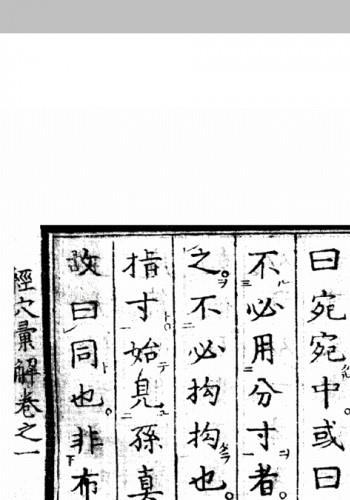 曰宛宛中或曰
不必用分寸者
之不必拘拘也
指寸始見孫真
故曰同也非布
經穴彙解卷之一